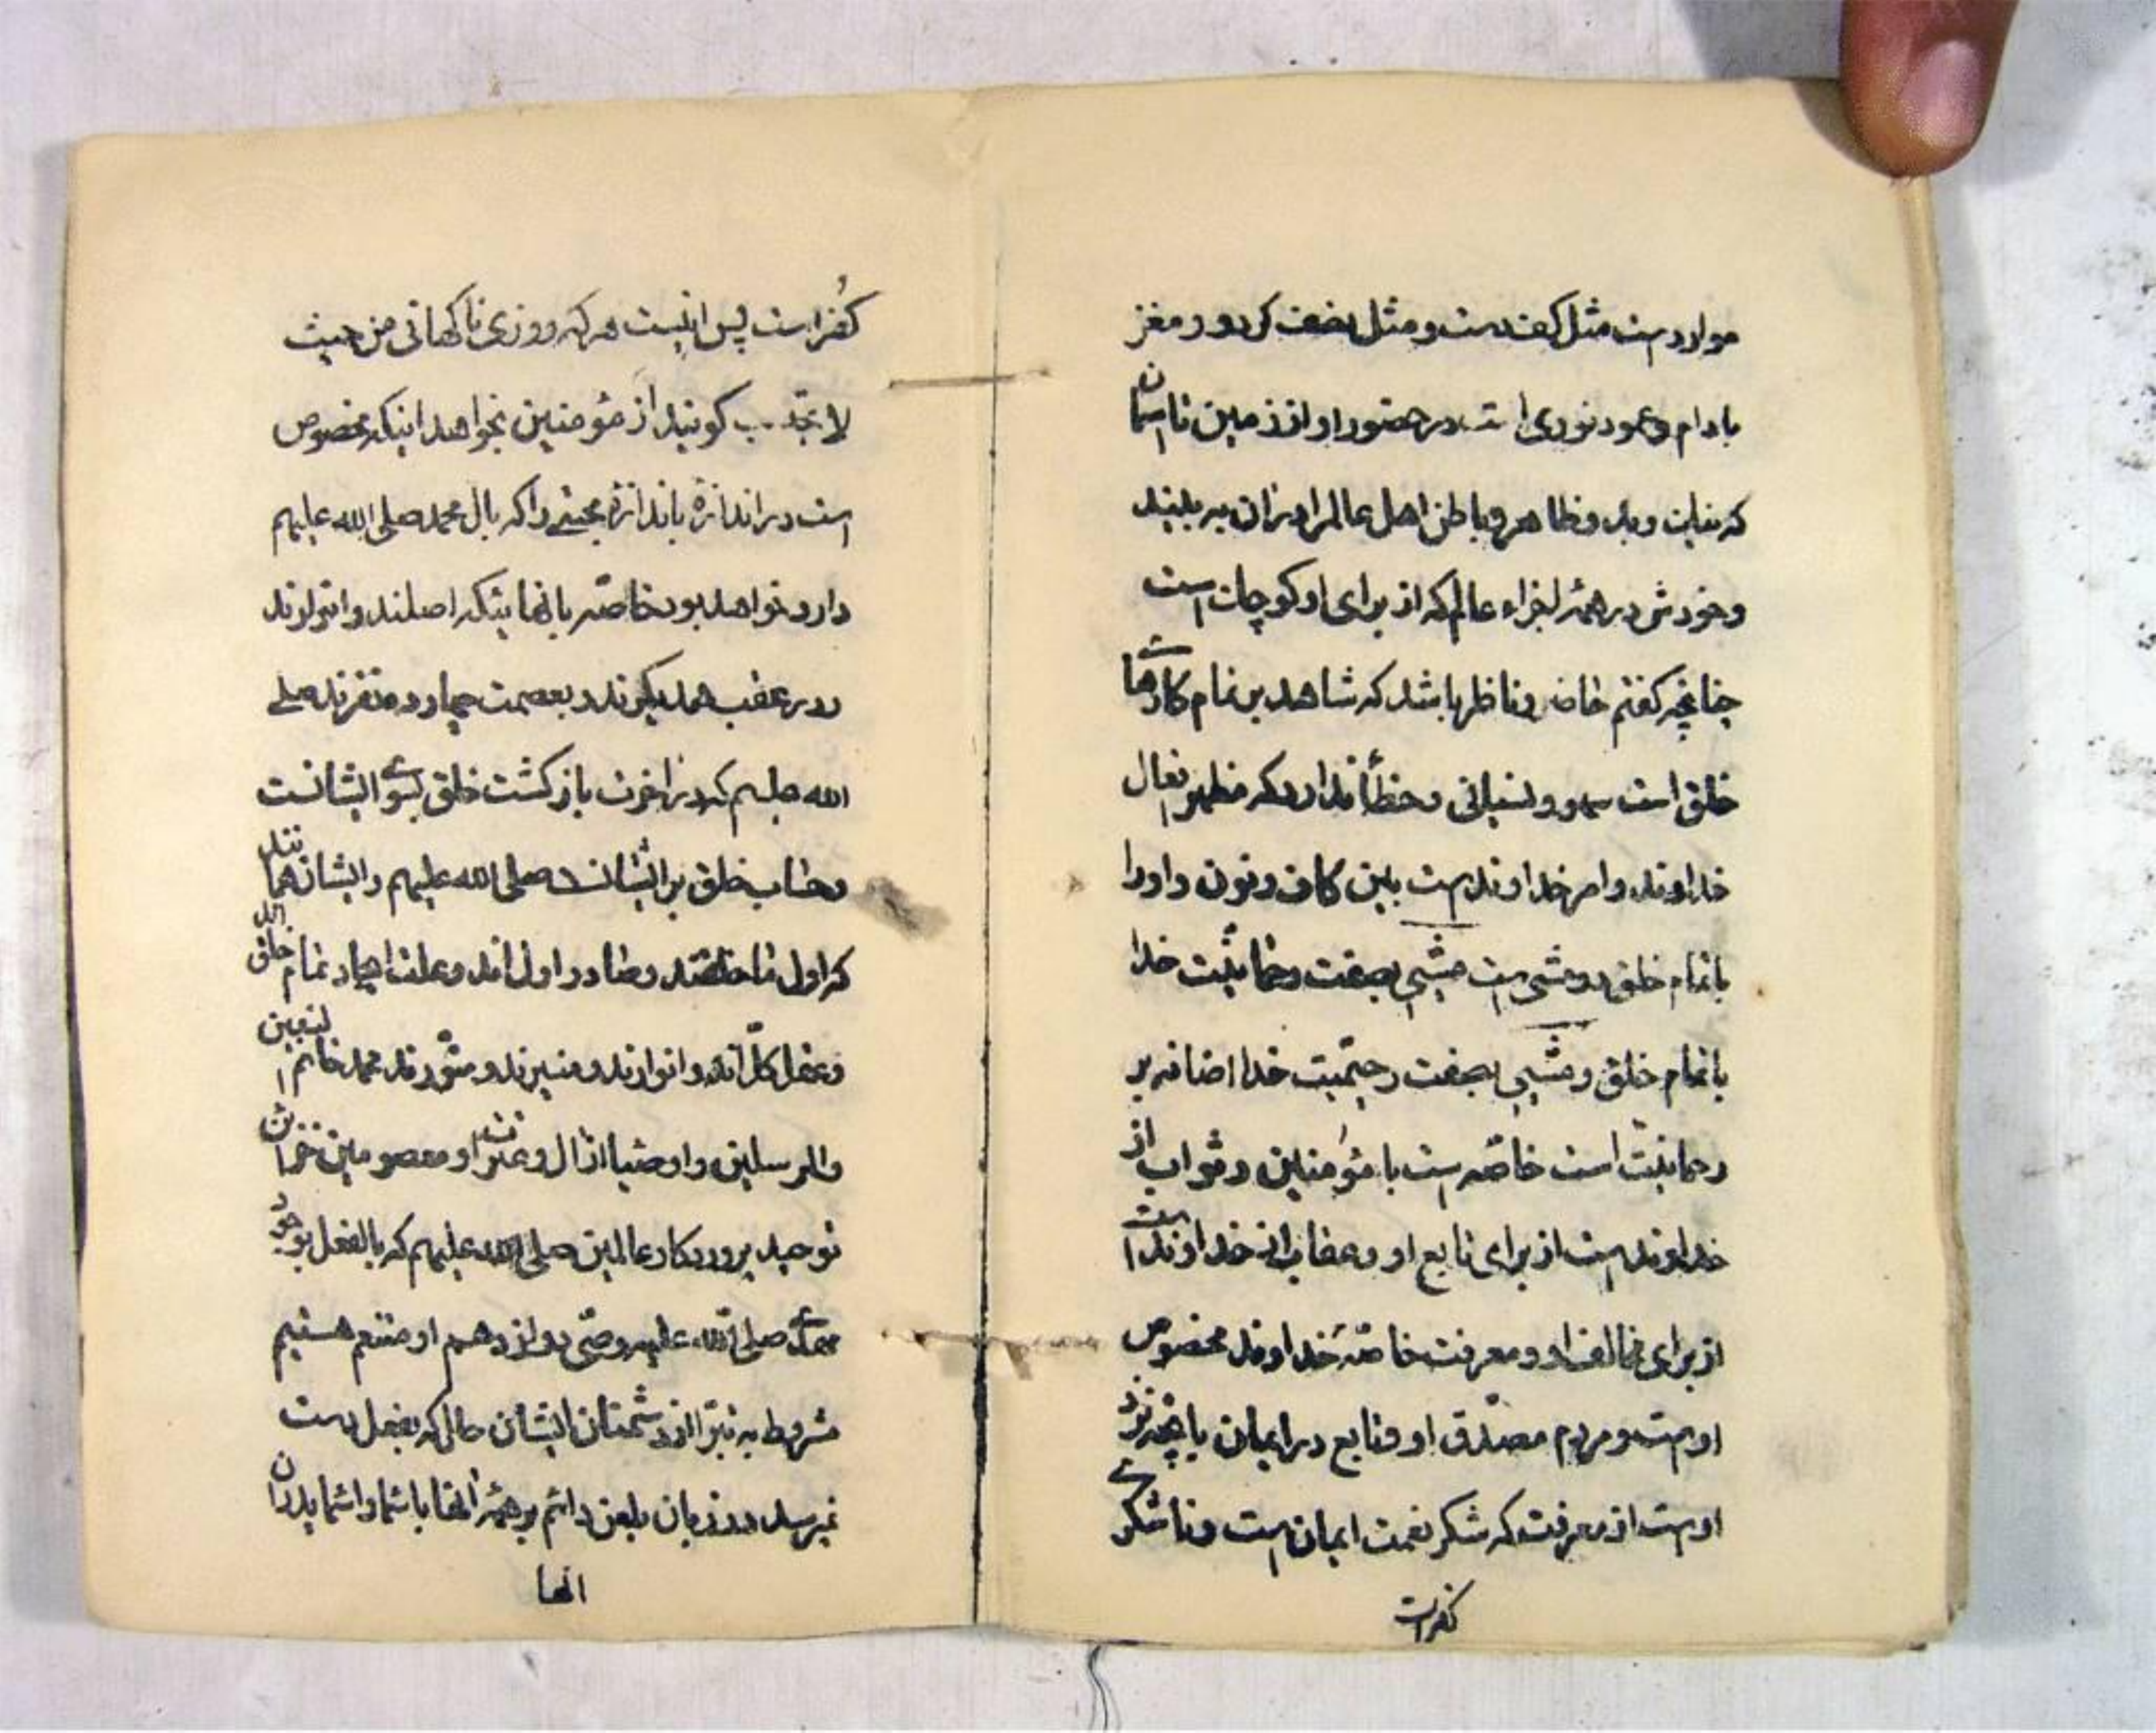 موارد است مثل کف دست و مثل نصف کردو در مغز
بادام و عمود نوری است در حضور او از زمین تا آسمان
که نیک و بد و ظاهر و باطن اهل عالم را در آن به بیند
و خودش در همهٔ اجزاء عالم که از برای او کوچک است
چنانچه گفتم حاضر و ناظر باشد که شاهد بر تمام کارهای
خلق است سهو و نسیانی و خطأ ندارد که مظهر افعال
خداوند و امر خداوند است بین کاف و نون و او را
با تمام خلق دو مشی است مشیی بصفت رحمانیّت خدا
با تمام خلق و مشیی بصفت رحیمیّت خدا اضافه بر
رحمانیّت است خاصّه است با مؤمنین و ثواب از
خداوند است از برای تابع او و عقاب از خداوند است
از برای مخالف او و معرفت خاصّهٔ خداوند مخصوص
اوست و مردم مصدّق او و تابع در ایمان بانچه نزد
اوست از معرفت که شکر نعمت ایمان است و ناشکری
کفر است
کُفر است پس اینست هر که روزی ناگهانی من حیث
لا یحتسب گویند از مؤمنین بخواهد اینکه مخصوص
است در اندازهٔ باندازهٔ محبّتی را که بال محمد صلی الله علیهم
دارد خواهد بود خاصّه بانهائیکه اصلند و انوارند
و در عقب همدیگرند و بعصمت چهارده نفرند صلی
الله علیهم که در آخرت بازگشت خلق بسوی ایشانست
و حساب خلق بر ایشانست صلی الله علیهم و ایشان همانند
که اول ما خلقند و صادر اول اند و علت ایجاد تمام خلق اند
و عقل کلّ اند و انوارند و منیرند و منوّرند محمد خاتم النبیین
والمرسلین و اوصیا از آل و عترت او معصومین خزائن
توحید پروردگار عالمین صلی الله علیهم که بالفعل بوجود
مهدی صلی الله علیه وصیّ دوازدهم او متنعم هستیم
مشروط به تبرّا از دشمنان ایشان حال که بفعل دست
نمیرسد در زبان بلعن دائم بر همهٔ انها با شما و اشما پدران
انها